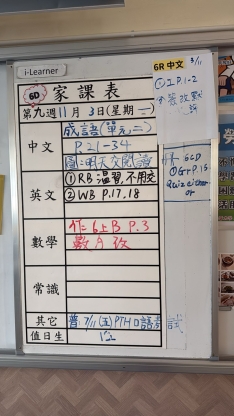 i-Learner
6D 家課表
第九週11月3日(星期一)
中文
成語(單元二)
P.21-34
英文
①RB溫習,不用交
②WB P.17,18
數學
作:6上B P.3
數月改
常識
其它
普:7/11(五)PTH口語考試
值日生
12
6R 中文 3/11
①工P.1-2
6CD
①Gr P.15
Quiz either
or